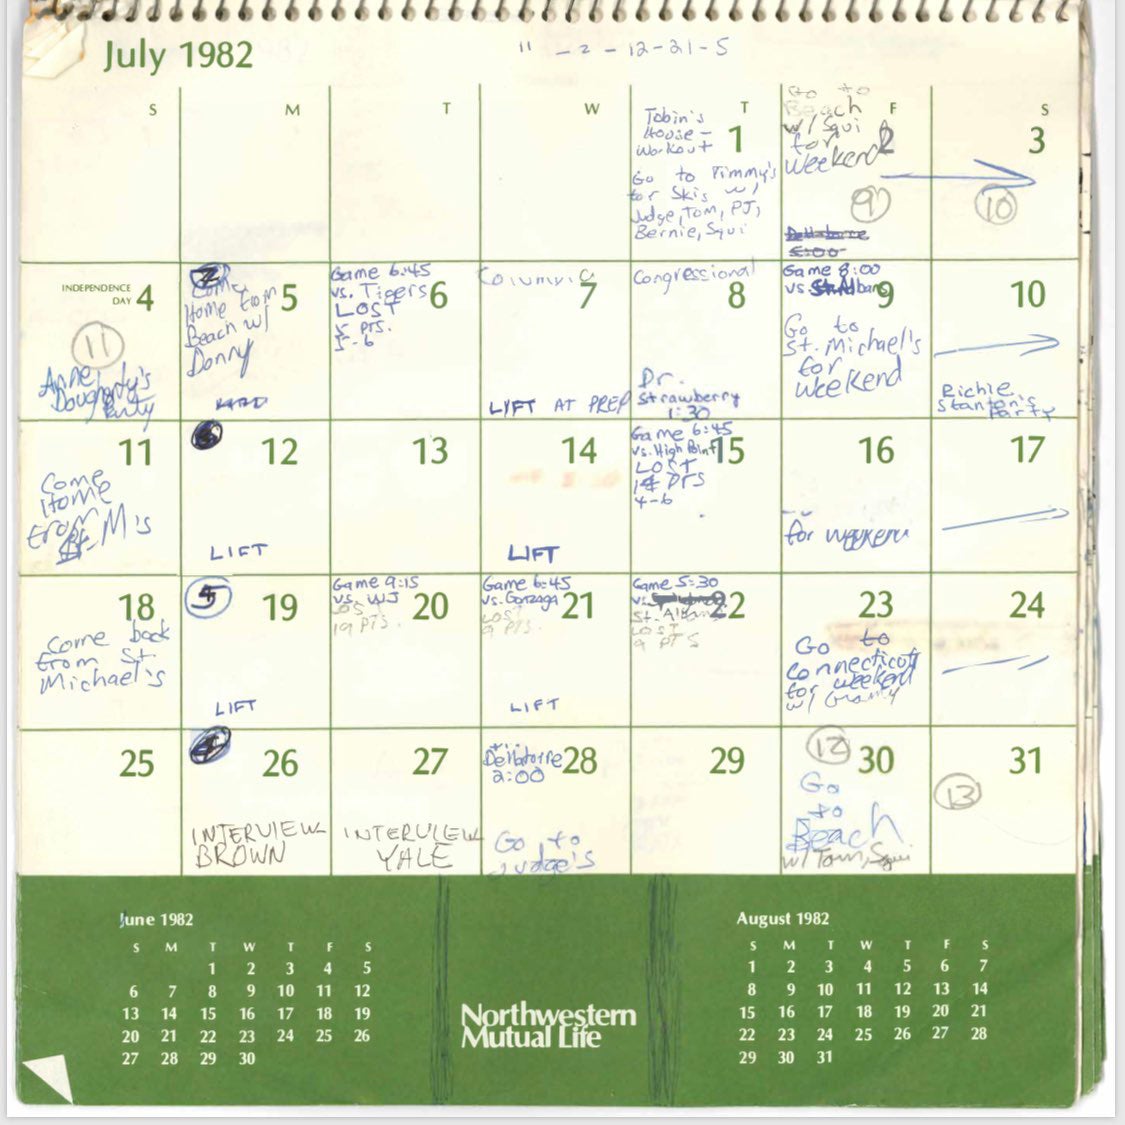 July 1982
11 - 2 - 12-21-5
S M T W T F S
1
Tobin's
House -
Workout
Go to Timmy's
for Skis w/
Judge, Tom, PJ,
Bernie, Squi
2
Go to
Beach
w/ Squi
for
Weekend
9
5:00
3
10
INDEPENDENCE
DAY 4
11
Anne
Dougherty's
Party
5
Come
Home from
Beach w/
Donny
6
Game 6:45
vs. Tigers
LOST
5 PTS.
5-6
7
LIFT AT PREP
8
Congressional
Dr.
Strawberry
1:30
9
Game 8:00
vs
Go to
St. Michael's
for
Weekend
10
Richie
Stanton's
Party
11
Come
Home
from
St. M's
12
LIFT
13
14
LIFT
15
Game 6:45
vs. High Point
LOST
PTS
4-6
16
for weekend
17
18
Come back
from St.
Michael's
5
19
LIFT
20
Game 9:15
vs. WJ
LOST
19 PTS.
21
Game 6:45
vs. Gonzaga
LOST
9 PTS.
LIFT
22
Game 5:30
vs.
St. Albans
LOST
9 PTS
23
Go to
Connecticut
for weekend
w/ Granny
24
25
26
INTERVIEW
BROWN
27
INTERVIEW
YALE
28
2:00
Go to
Judge's
29
12
30
Go
to
Beach
w/ Tom, Squi
31
13
June 1982
S M T W T F S
1 2 3 4 5
6 7 8 9 10 11 12
13 14 15 16 17 18 19
20 21 22 23 24 25 26
27 28 29 30
Northwestern
Mutual Life
August 1982
S M T W T F S
1 2 3 4 5 6 7
8 9 10 11 12 13 14
15 16 17 18 19 20 21
22 23 24 25 26 27 28
29 30 31